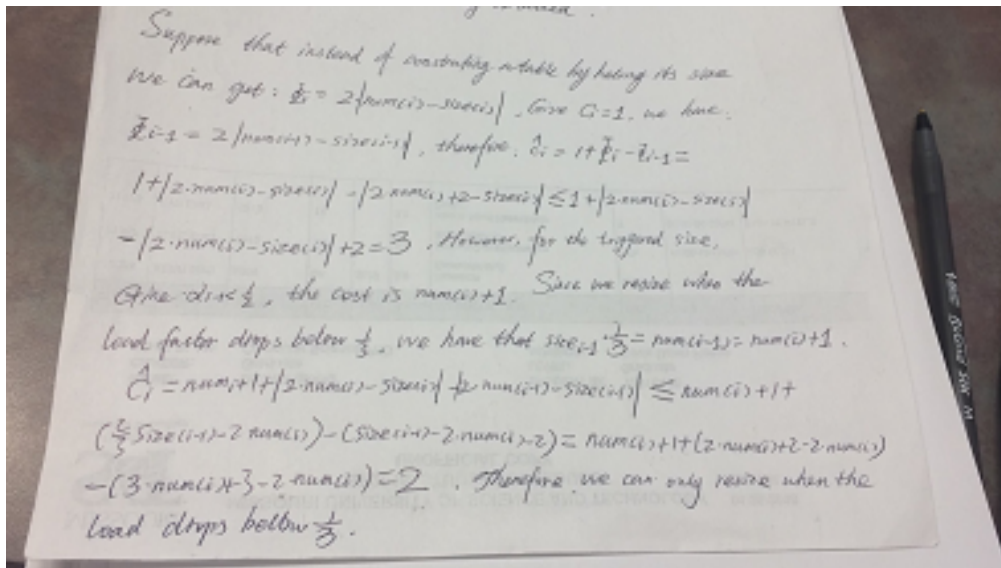 Suppose that instead of constructing a table by halving its size
we can get : Φi = 2|num(i)-size(i)| . Give Ci=1, we have.
Φi-1 = 2|num(i-1)-size(i-1)|, therefore, Ĉi = 1+Φi-Φi-1=
1+|2·num(i)-size(i)| -|2·num(i)+2-size(i)| ≤ 1+|2·num(i)-size(i)|
-|2·num(i)-size(i)|+2=3 . However, for the triggered size,
the cost is num(i)+1. Since we resize when the
load factor drops below 1/3, we have that size i-1 · 1/3 = num(i-1)= num(i)+1.
Ĉi = num i+1+|2·num(i)-size(i)| -|2·num(i-1)-size(i-1)| ≤ num(i)+1+
(2/3 size(i-1)-2·num(i))-(size(i-1)-2·num(i)-2)= num(i)+1+(2·num(i)+2-2·num(i))
-(3·num(i)+3-2·num(i))=2 . Therefore we can only resize when the
load drops bellow 1/3.